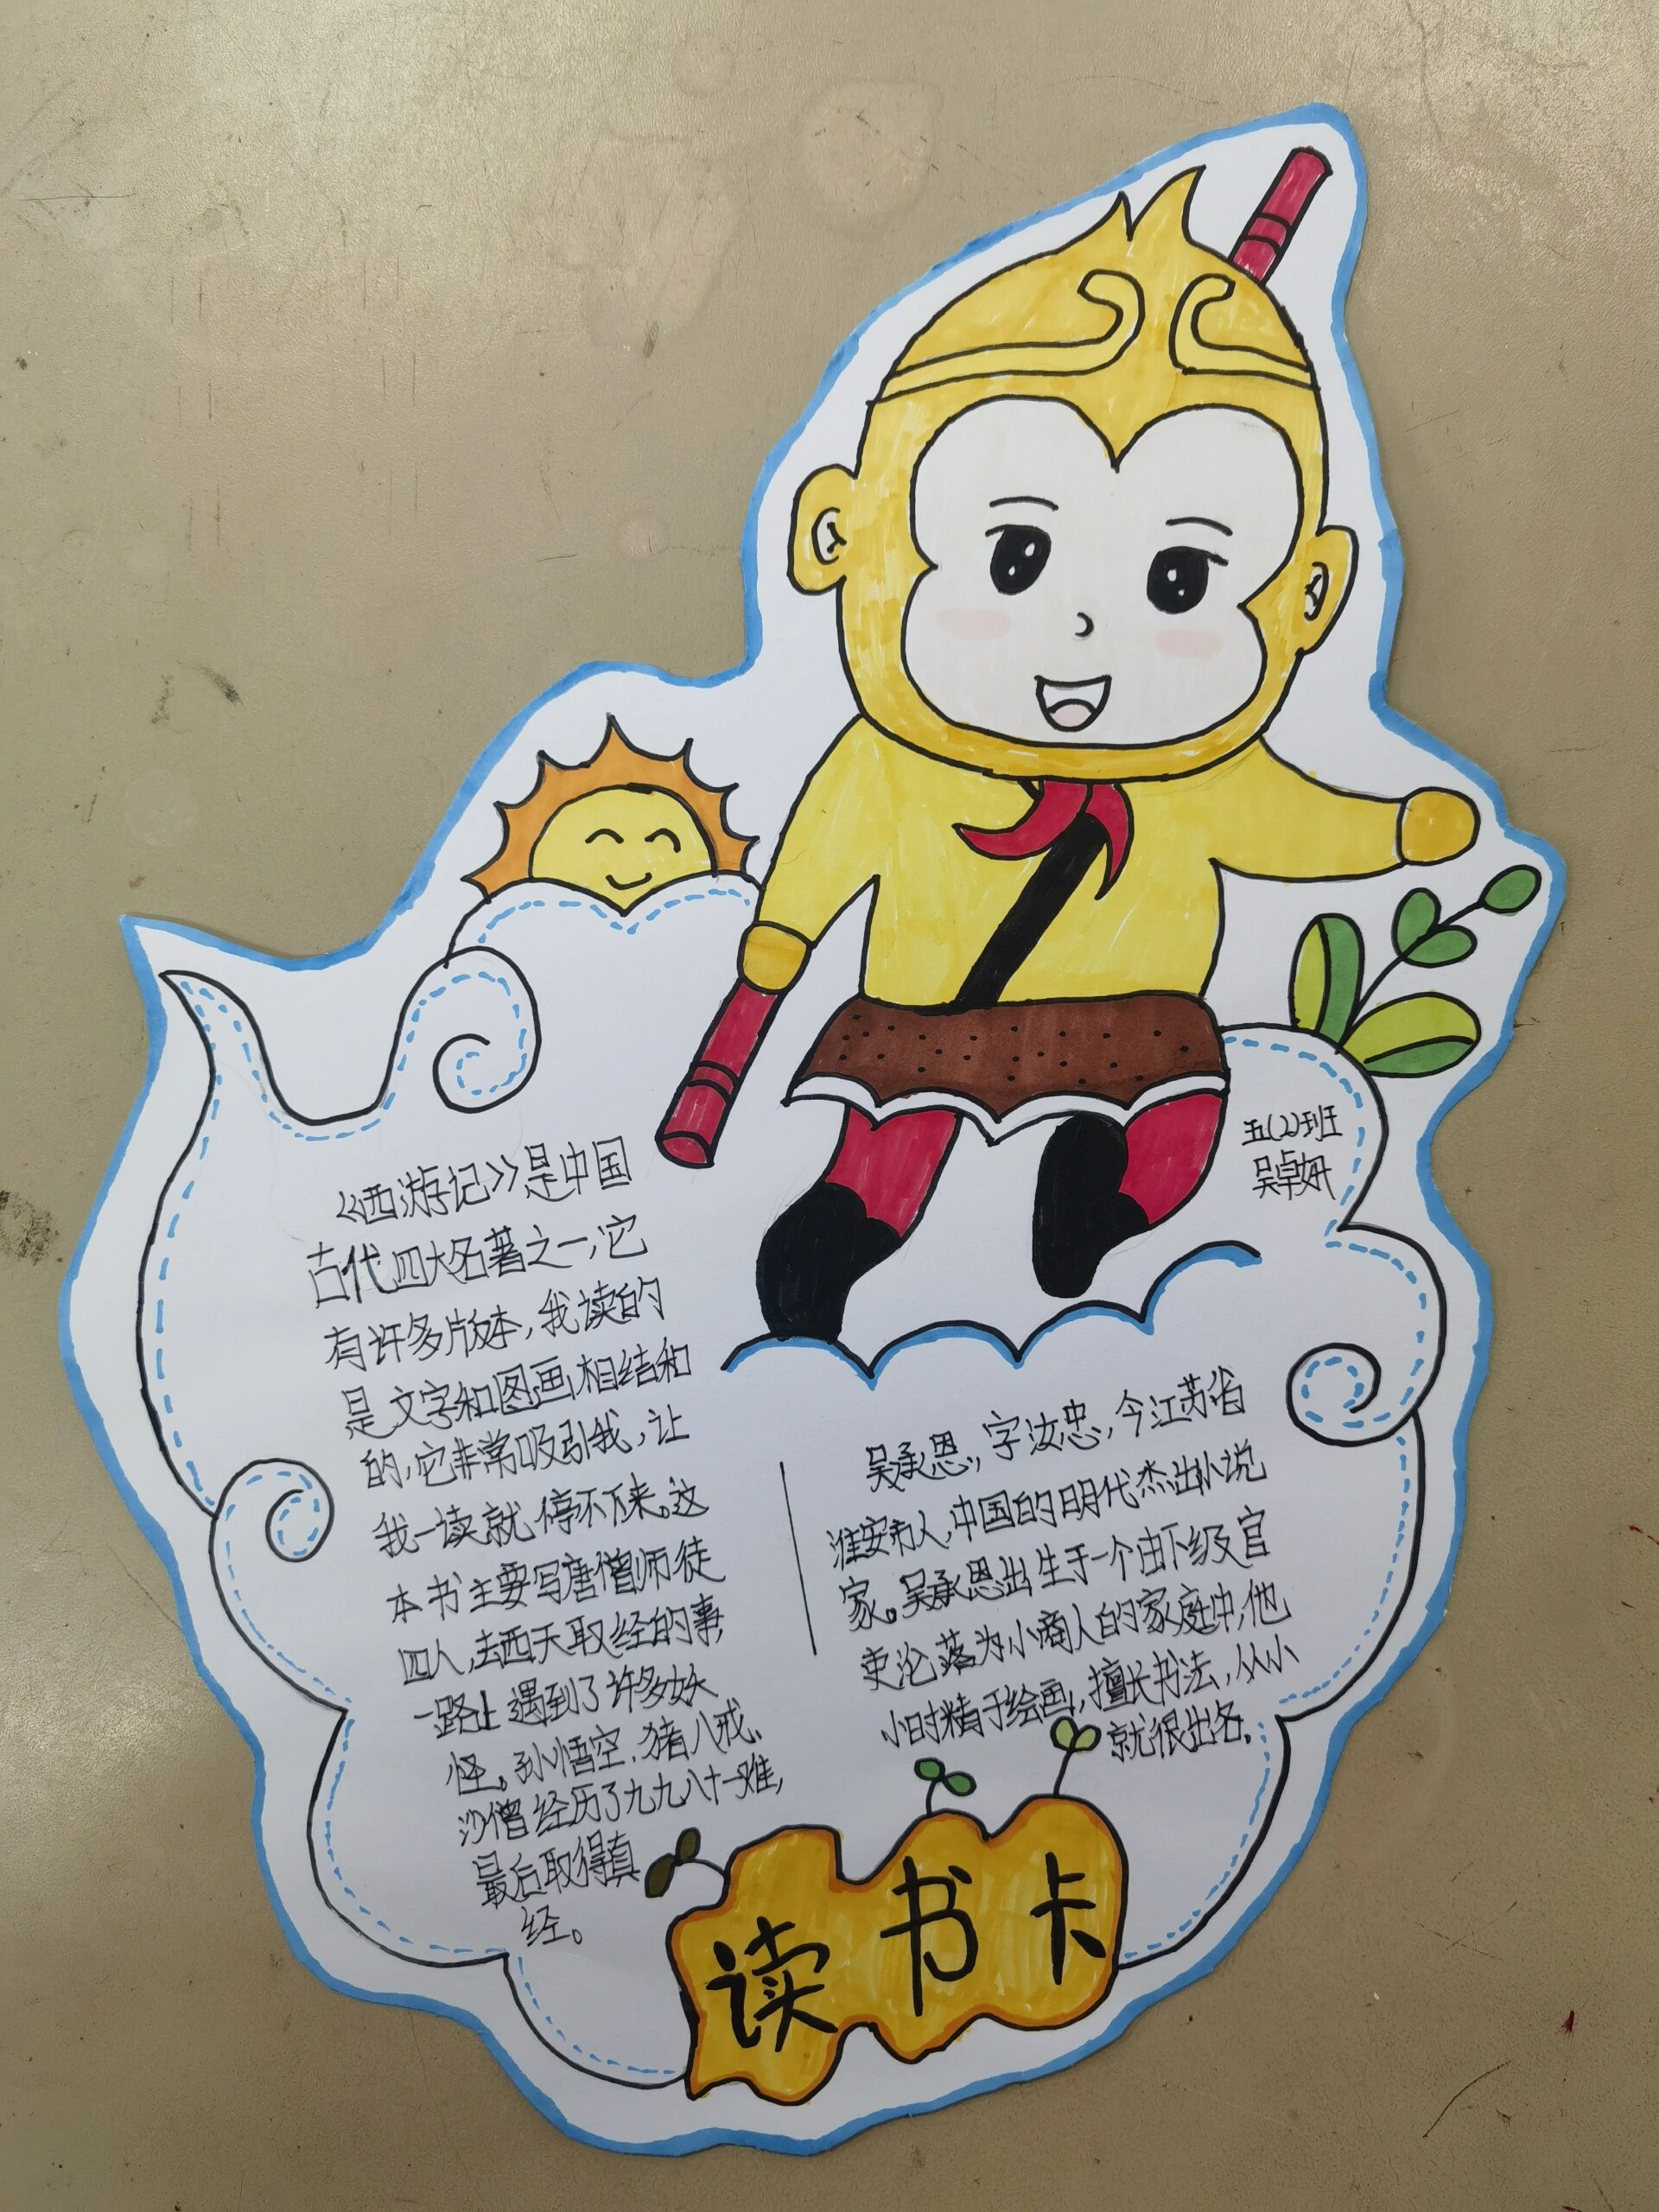 《西游记》是中国
古代四大名著之一,它
有许多版本,我读的
是文字和图画相结和
的,它非常吸引我,让
我一读就停不下来。这
本书主要写唐僧师徒
四人,去西天取经的事,
一路上遇到了许多妖
怪。孙悟空,猪八戒、
沙僧经历了九九八十一难,
最后取得真
经。
吴承恩,字汝忠,今江苏省
淮安市人,中国的明代杰出小说
家。吴承恩出生于一个由下级官
吏沦落为小商人的家庭中,他
小时精于绘画,擅长书法,从小
就很出名。
五(2)班
吴卓妍
读书卡